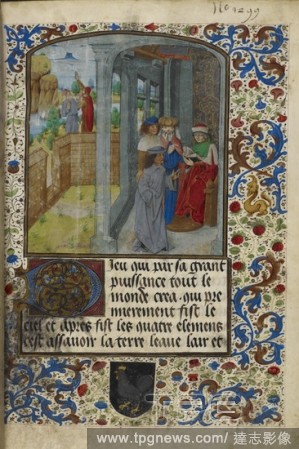 Dieu qui par sa grant
puissance tout le
monde crea. qui pre
mierement fist le
ciel et apres fist les quatre elemens
cest assavoir la terre leaue lair et
www.tpgnews.com/達志影像